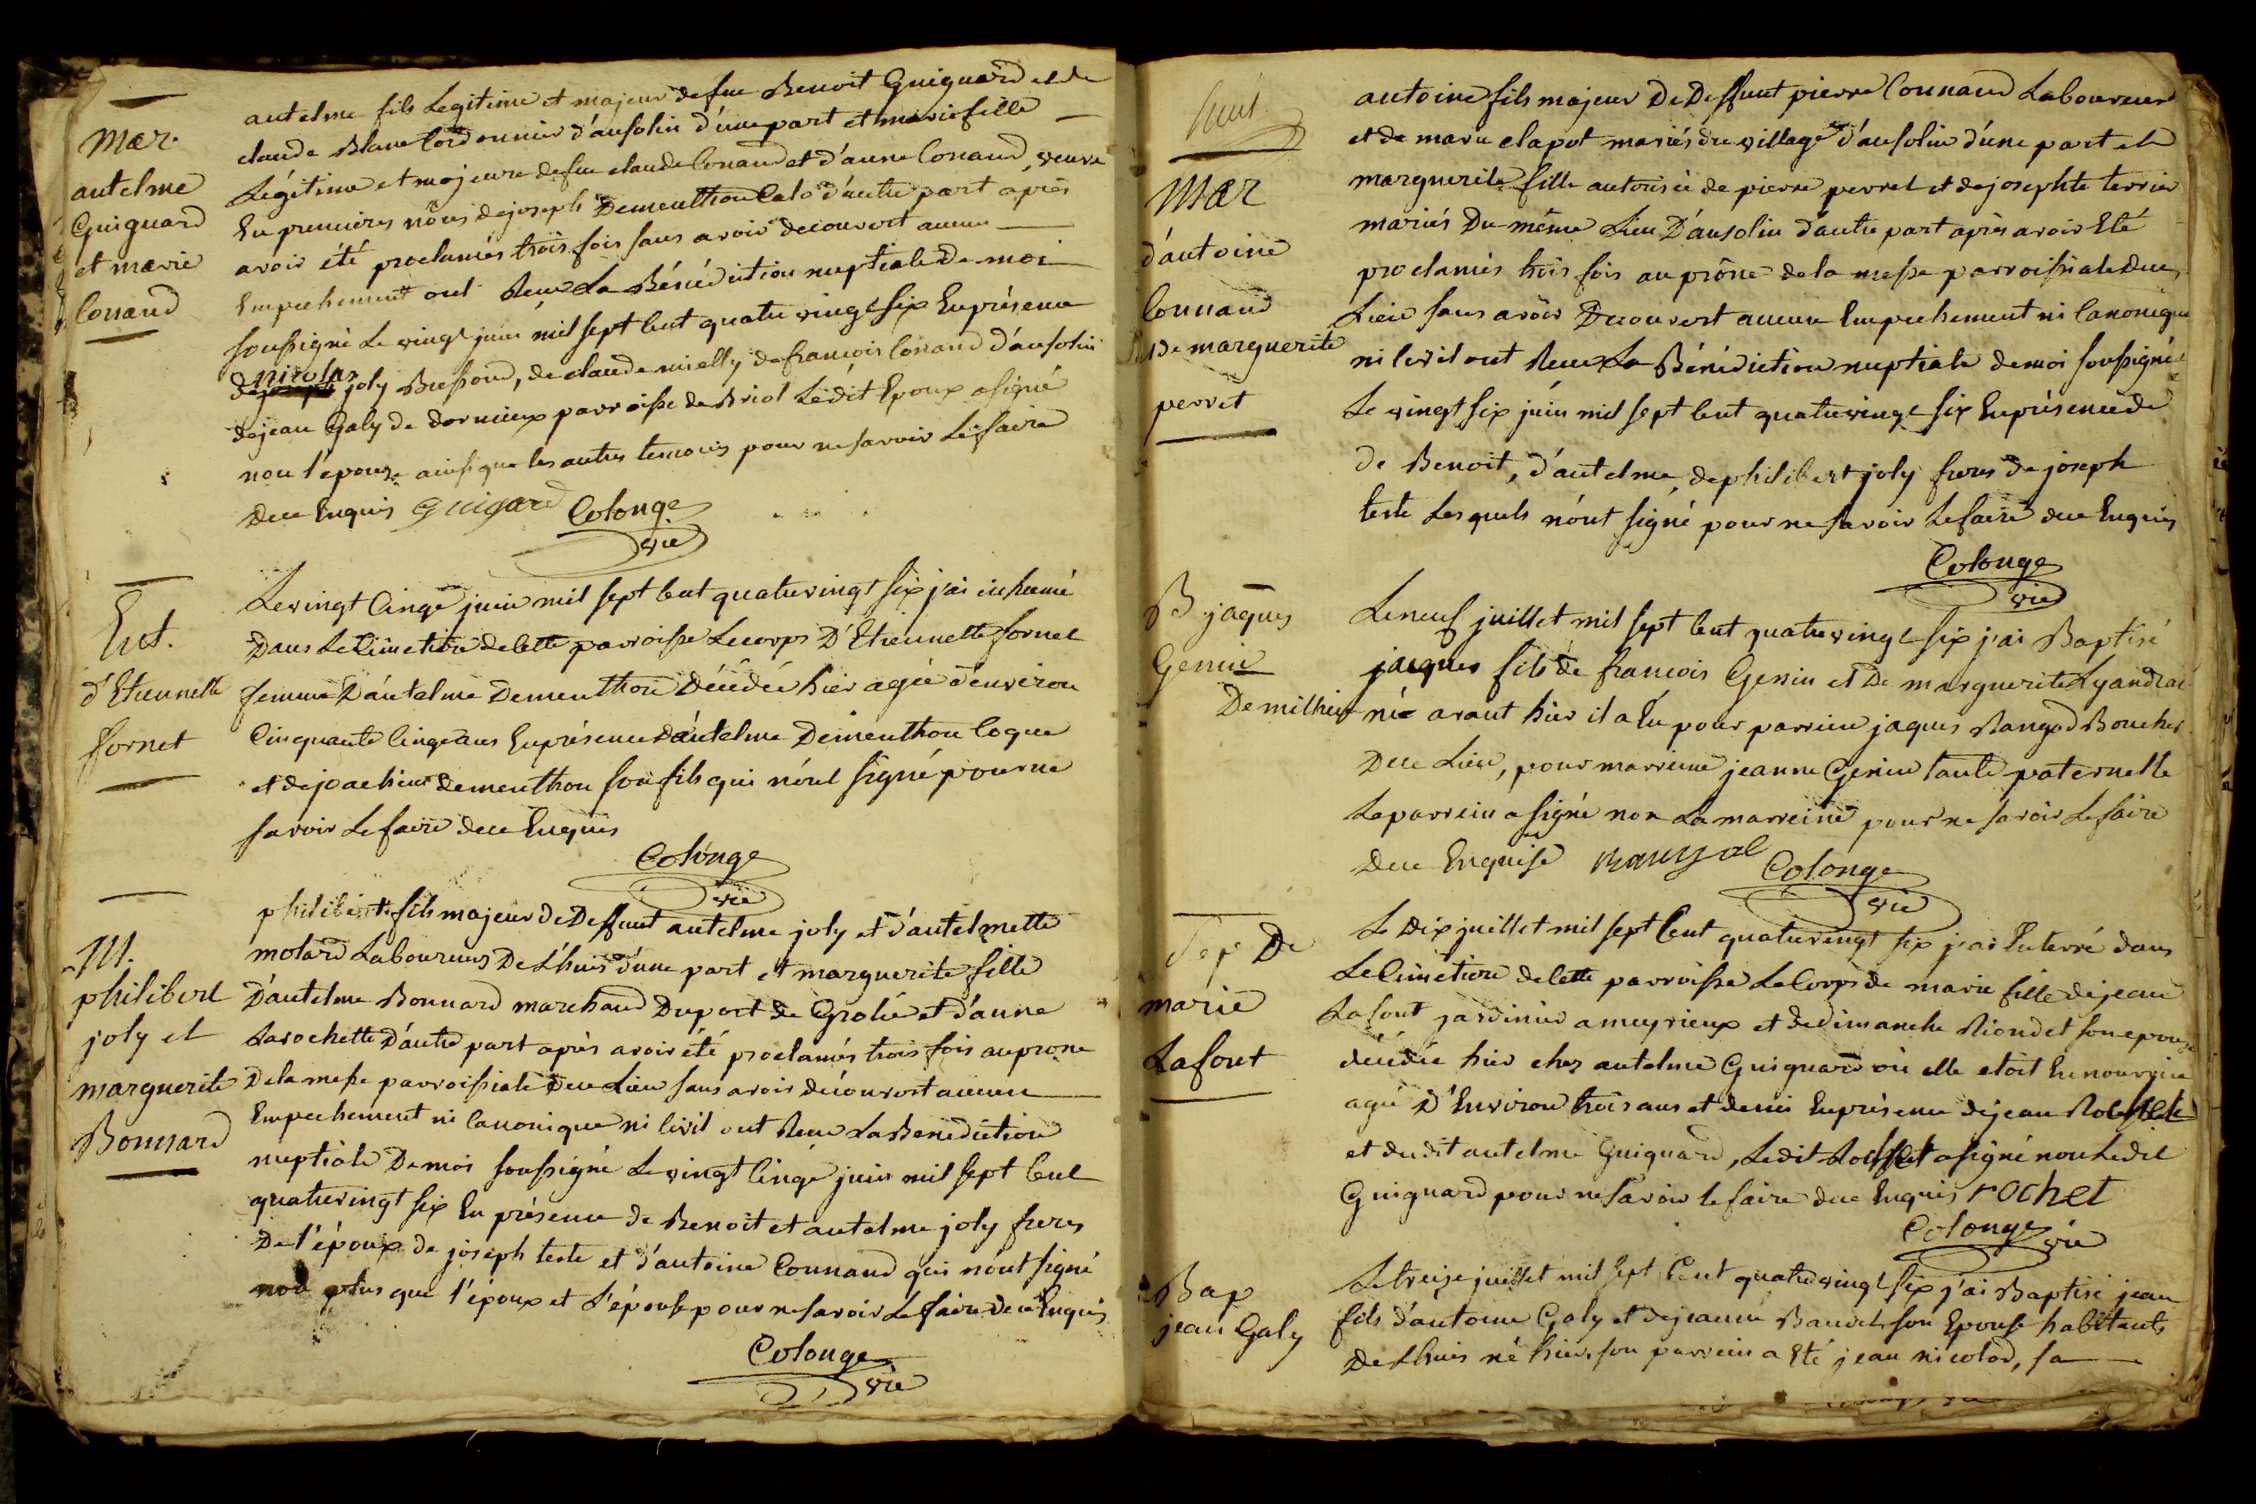 Mar.
autelme
Guiguard
et marie
Conand
autelme fils Legitime et majeur de feu Benoit Guiguard et de
claude Blanc Cordonnier d'ansolin d'une part et marie fille
Légitime et majeure de feu claude Conand et d'anne Conand, veuve
En premieres nôces de joseph Dementhon Calo d'autre part après
avoir été proclamés trois fois sans avoir decouvert aucun
Empechement ont Reçu La Bénédiction nuptiale de moi
soussigné Le vingt juin mil sept Cent quatre vingt six En présence
de nicolas joly Bressond, de claude mielly de francois Conand d'ansolin
de jean Galy de dornieux parroisse de Briol Ledit Epoux a signé
non l'epouze ainsi que les autres temoins pour ne savoir Le faire
de ce Enquis Guigard Colonge
vic
Ent.
d'Etiennette
fornet
Le vingt Cinqe juin mil sept Cent quatre vingt six j'ai inhumé
Dans Le Cimetiere de Cette parroisse Le corps D'Etiennette fornet
femme D'autelme Dementhon Décédée hier agée d'environ
Cinquante Cinq ans En présence d'autelme Dementhon Coque
et de joachim dementhon son fils qui n'ont signé pour ne
savoir Le faire de ce Enquis
Colonge
vic
M.
philibert
joly et
marguerite
Bonnard
philibert fils majeur de Deffunt autelme joly et d'autelmette
molard Laboureurs De Lhuis d'une part et marguerite fille
D'autelme Bonnard marchand Du port de Grolée et d'anne
Larochette D'autre part après avoir été proclamés trois fois au prone
De la messe parroissiale De ce Lieu sans avoir découvert aucun
Empechement ni Canonique ni Civil ont Reçu La Benediction
nuptiale De moi soussigné Le vingt Cinqe juin mil sept Cent
quatrevingt six En présence de Benoit et autelme joly freres
De l'époux de joseph teste et d'antoine Connand qui n'ont signé
non plus que l'époux et L'épouse pour ne savoir Le faire de ce Enquis
Colonge
vic
Mar
d'antoine
Connand
De marguerite
perret
antoine fils majeur De Deffunt pierre Connand Laboureur
et de marie clapot mariés du village d'ansolin d'une part et
marguerite fille autorisée de pierre perret et de josephte terrier
mariés Du même Lieu D'ansolin d'autre part après avoir Eté
proclamés trois fois au prône de la messe parroissiale de ce
Lieu sans avoir Decouvert aucun Empechement ni Canonique
ni Civil ont Reçu La Bénédiction nuptiale de moi soussigné
Le vingt six juin mil sept Cent quatrevingt six En présence de
de Benoit, d'autelme, de philibert joly freres de joseph
teste Les quels n'ont signé pour ne savoir Le faire de ce Enquis
Colonge
vic
B jaques
Genin
De milhieu
Le neuf juillet mil sept Cent quatre vingt six j'ai Baptisé
jacques fils de francois Genin et De marguerite Lyandrat
né avant hier il a Eu pour parrein jaques Rangod Boucher
De ce Lieu, pour marreine jeanne Genin tante paternelle
Le parrein a signé non La marreine pour ne savoir Le faire
de ce Enquise Colonge
vic
Sep De
marie
Lafont
Le Dix juillet mil sept Cent quatrevingt six j'ai Enterré dans
Le Cimetiere de Cette parroisse Le Corps de marie fille de jean
Lafont jardinier a meyrieux et de dimanche Riondet son epouze
décédée hier chez autelme Guiguard où elle etoit En nourrice
agée D'Environ trois ans et demi En présence de jean Rochet
et dudit autelme Guiguard, Ledit Rochet a signé non Ledit
Guiguard pour ne savoir le faire de ce Enquis rochet
Colonge vic
Bap
jean Galy
Le treize juillet mil sept Cent quatre vingt six j'ai Baptisé jean
fils d'antoine Galy et de jeanne Baudet son Epouse habitants
De Lhuis né hier. son parrein a Eté jean nicolod, sa